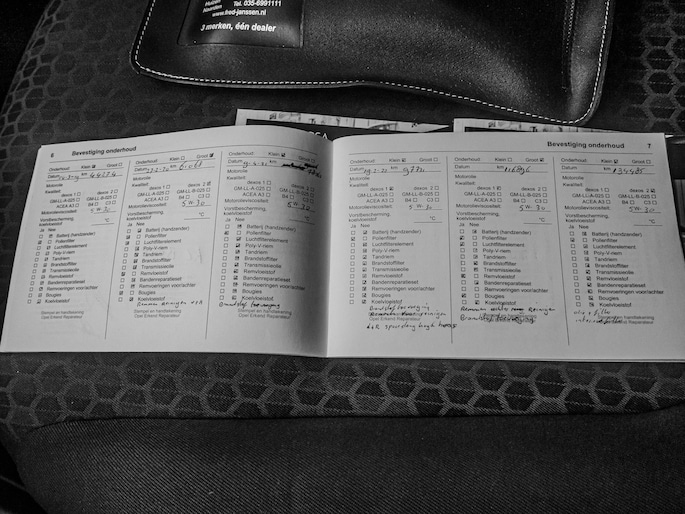 Huizen Tel. 035-6991111
Naarden
www.fred-janssen.nl
3 merken, één dealer
6 Bevestiging onderhoud
Onderhoud: Klein Groot
Datum km 44274
Motorolie
Kwaliteit:
dexos 1 dexos 2
GM-LL-A-025 GM-LL-B-025
ACEA A3 B4 C3
Motorolieviscositeit: 5W30
Vorstbescherming, koelvloeistof: °C
Ja Nee
Batterij (handzender)
Pollenfilter
Luchtfilterelement
Poly-V-riem
Tandriem
Brandstoffilter
Transmissieolie
Remvloeistof
Bandenreparatieset
Remvoeringen voor/achter
Bougies
Koelvloeistof
Stempel en handtekening
Opel Erkend Reparateur
Onderhoud: Klein Groot
Datum km
Motorolie
Kwaliteit:
dexos 1 dexos 2
GM-LL-A-025 GM-LL-B-025
ACEA A3 B4 C3
Motorolieviscositeit: 5W30
Vorstbescherming, koelvloeistof: °C
Ja Nee
Batterij (handzender)
Pollenfilter
Luchtfilterelement
Poly-V-riem
Tandriem
Brandstoffilter
Transmissieolie
Remvloeistof
Bandenreparatieset
Remvoeringen voor/achter
Bougies
Koelvloeistof
Remmen reinigen
Stempel en handtekening
Opel Erkend Reparateur
Onderhoud: Klein Groot
Datum km
Motorolie
Kwaliteit:
dexos 1 dexos 2
GM-LL-A-025 GM-LL-B-025
ACEA A3 B4 C3
Motorolieviscositeit:
Vorstbescherming, koelvloeistof: °C
Ja Nee
Batterij (handzender)
Pollenfilter
Luchtfilterelement
Poly-V-riem
Tandriem
Brandstoffilter
Transmissieolie
Remvloeistof
Bandenreparatieset
Remvoeringen voor/achter
Bougies
Koelvloeistof
Stempel en handtekening
Opel Erkend Reparateur
Bevestiging onderhoud 7
Onderhoud: Klein Groot
Datum km
Motorolie
Kwaliteit:
dexos 1 dexos 2
GM-LL-A-025 GM-LL-B-025
ACEA A3 B4 C3
Motorolieviscositeit: 5W30
Vorstbescherming, koelvloeistof: °C
Ja Nee
Batterij (handzender)
Pollenfilter
Luchtfilterelement
Poly-V-riem
Tandriem
Brandstoffilter
Transmissieolie
Remvloeistof
Bandenreparatieset
Remvoeringen voor/achter
Bougies
Koelvloeistof
Stempel en handtekening
Opel Erkend Reparateur
Onderhoud: Klein Groot
Datum km
Motorolie
Kwaliteit:
dexos 1 dexos 2
GM-LL-A-025 GM-LL-B-025
ACEA A3 B4 C3
Motorolieviscositeit: 5W30
Vorstbescherming, koelvloeistof: °C
Ja Nee
Batterij (handzender)
Pollenfilter
Luchtfilterelement
Poly-V-riem
Tandriem
Brandstoffilter
Transmissieolie
Remvloeistof
Bandenreparatieset
Remvoeringen voor/achter
Bougies
Koelvloeistof
Remmen Reinigen
Stempel en handtekening
Opel Erkend Reparateur
Onderhoud: Klein Groot
Datum km
Motorolie
Kwaliteit:
dexos 1 dexos 2
GM-LL-A-025 GM-LL-B-025
ACEA A3 B4 C3
Motorolieviscositeit: 5W30
Vorstbescherming, koelvloeistof: °C
Ja Nee
Batterij (handzender)
Pollenfilter
Luchtfilterelement
Poly-V-riem
Tandriem
Brandstoffilter
Transmissieolie
Remvloeistof
Bandenreparatieset
Remvoeringen voor/achter
Bougies
Koelvloeistof
Stempel en handtekening
Opel Erkend Reparateur